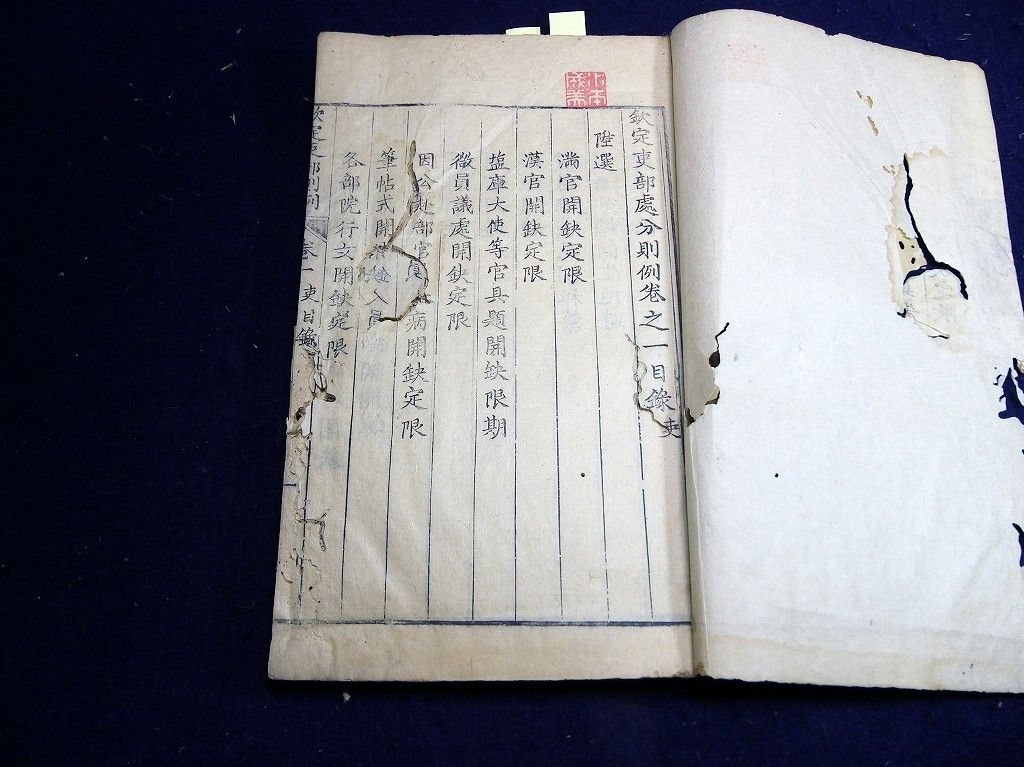 欽定吏部處分則例卷之一目錄 吏
陞選
滿官開缺定限
漢官開缺定限
塩庫大使等官具題開缺限期
微員議處開缺定限
因公赴部官員病開缺定限
筆帖式開人員
各部院行文開缺定限
欽定吏部則例 卷一 吏目錄